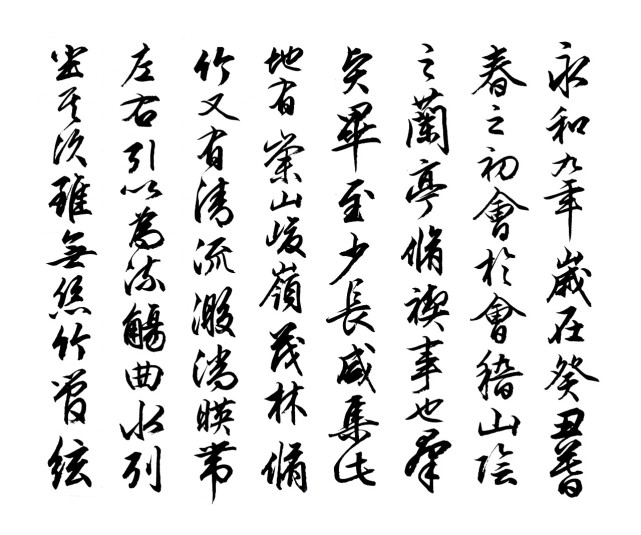 永和九年歲在癸丑暮
春之初會於會稽山陰
之蘭亭脩禊事也羣
賢畢至少長咸集此
地有崇山峻嶺茂林脩
竹又有清流激湍暎帶
左右引以為流觴曲水列
坐其次雖無絲竹管絃